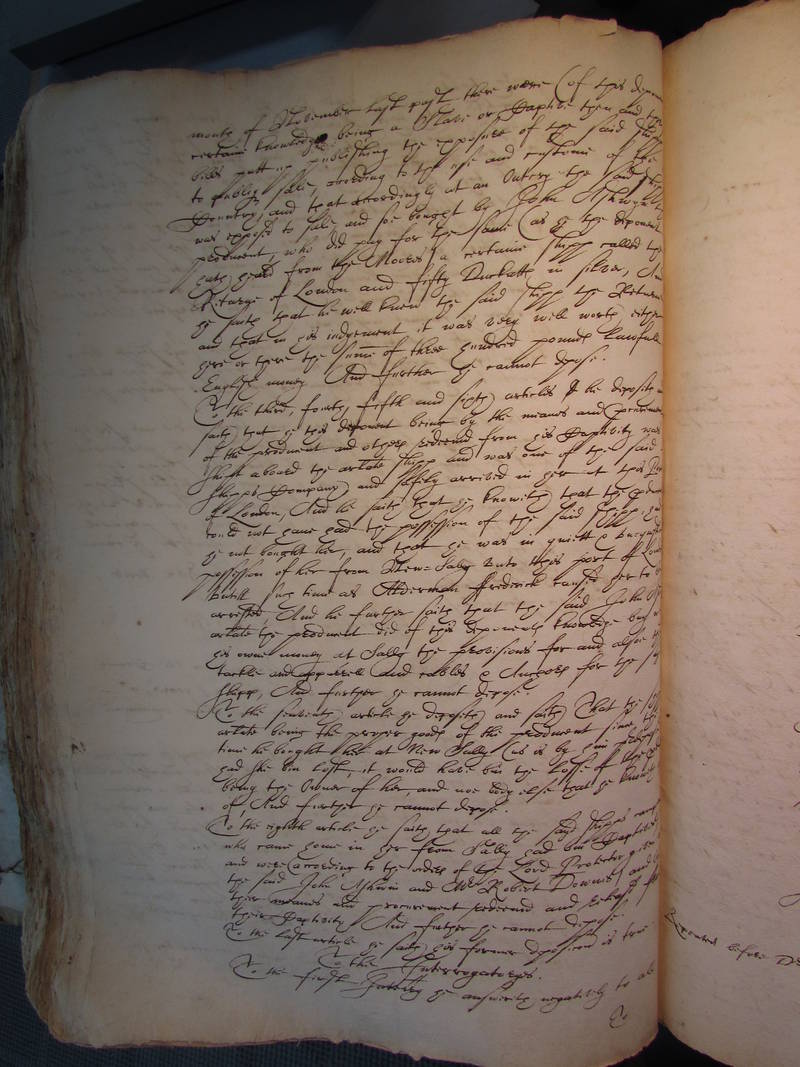 month of November last past there were (of this depon
certaine knowledge being a Slave or Captive then and there
bills putt up publishing the exposure of the said shipp
to publiq sale, according to the use and custome of the
Country, and that accordingly at an Outcry the said shipp
was expost to sale and soe bought by John Ashwyn
producent, who did pay for the same (as he the deponent
hath heard from the Moores) a certaine shipp called the
of London and fifty Duckatts in silver, And
he saith that he well knew the said shipp the
and that in his iudgement it was very well worth either
here or there the summe of three hundred pounds lawfull
English money And further he cannot depose.
To the third, fourth, fifth and sixth articles he deposeth
saith that he this deponent being by the meanes and procurement
of the producent and others redeemd from his Captivity was
shipt aboard the arlate shipp and was one of the said
shipps Company, and safely arrived in her at this Port
of London, And he saith that he knoweth that the producent
could not have had the possession of the said shipp, had
he not bought her, and that he was in quiett &
possession of her from New-Sally unto this port of London
untill such time as Alderman ffrederick caused her to be
arrested, And he further saith that the said John
arlate the producent did of this deponents knowledge buy
his owne money at Sally the provisions for and alsoe the
tackle and apparrell and cables & Anchors for the said
shipp, And further he cannot depose.
To the seaventh article he deposeth and saith That the shipp
arlate being the proper goods of the producent since the
time he bought her at New Sally (as is by him
had she bin lost, it would have bin the losse of the
being the Owner of her, and noe body else that he knoweth
of, And further he cannot depose.
To the eighth article he saith that all the said shipps company
who came home in her from Sally had bin Captives
and were (according to the order of the Lord Protector
the said John Ashwin and Mr Robert Downes and by
their meanes and procurement redeemd and
their Captivity And further he cannot depose
To the last article he saith his former deposition is true
To the Interrogatories.
To the first he answereth negatively to all
To
Repeated before